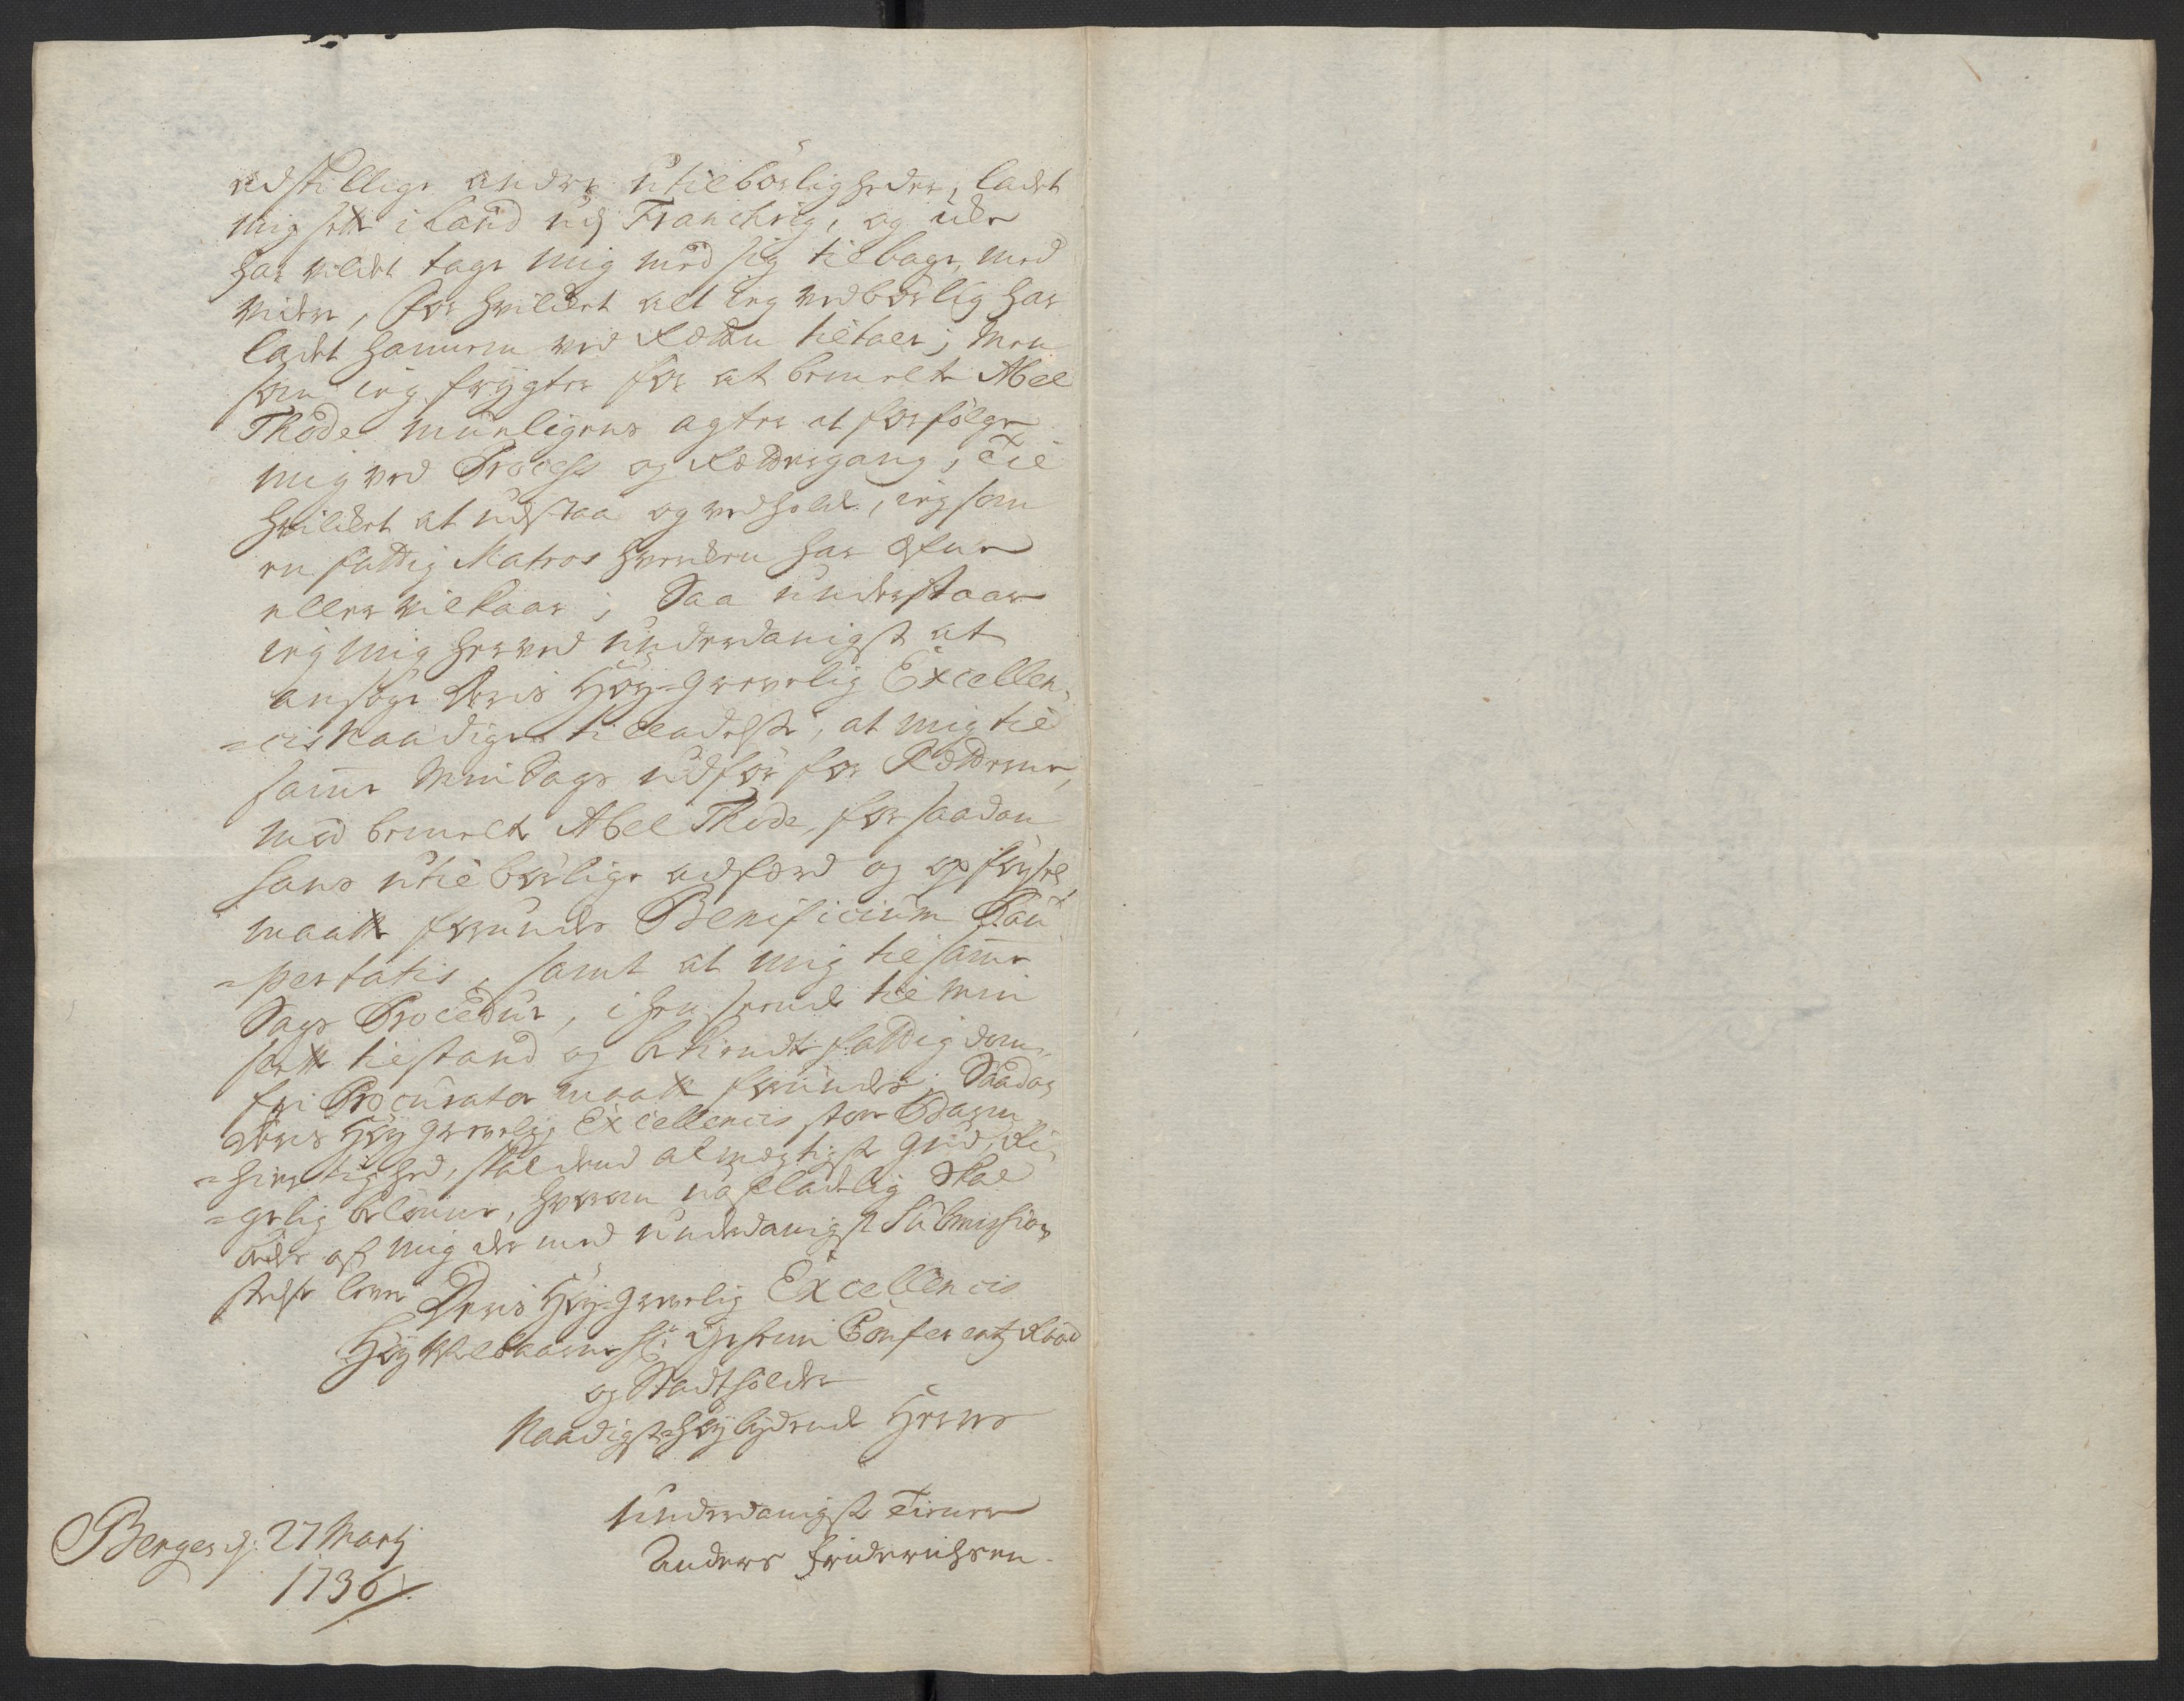 adskillige andre utilbørligheder, ladet
mig sette i Land udj Franchrig, og icke
har vildet tage mig med sig tilbage, med
videre, for hvilcket alt ieg vedbørlig har
ladet hannem ved Rætten tiltale; Men
som ieg frygter for at bemelte Abel
Thode mueligens agter at forfølge
mig ved Process og Rættergang, Til
hvilcket at udstaa og vedholde, ieg som
en fattig Matros hvercken har Efne
eller vilkaar; Saa understaar
ieg mig herved underdanigst at
ansøge Deris Høy-Grevelig Excellen-
-cis Naadigste tilladelse, at mig til
samme Min Sags udfør for Rætterne,
med bemelte Abel Thode, for saadan
hans utilbørlige adfærd og opførsel,
maatte forundes Benificium Pau-
-pertatis, samt at mig til samme
Sags Procedur, i henseende til Min
slette tilstand og bekiendte fattigdom,
fri Procurator maatte forundes; Saadan
Deris Høy Grevelig Excellencis store Barm-
-hiertighed, skal dend almægtigste Gud Ri-
-gelig belønne, hvorom uafladelig skal
bedes af mig der med underdanigst Submission
stedse lever Deris Høy-Grevelig Excellencis
Høy Velbaarne Hr: Geheimi Conferentz Raad
og Stadtholder
Naadigste Høybydende Herres
Underdanigste Tiener
Anders Friderichsen.
Bergen d: 27 Martj
1736